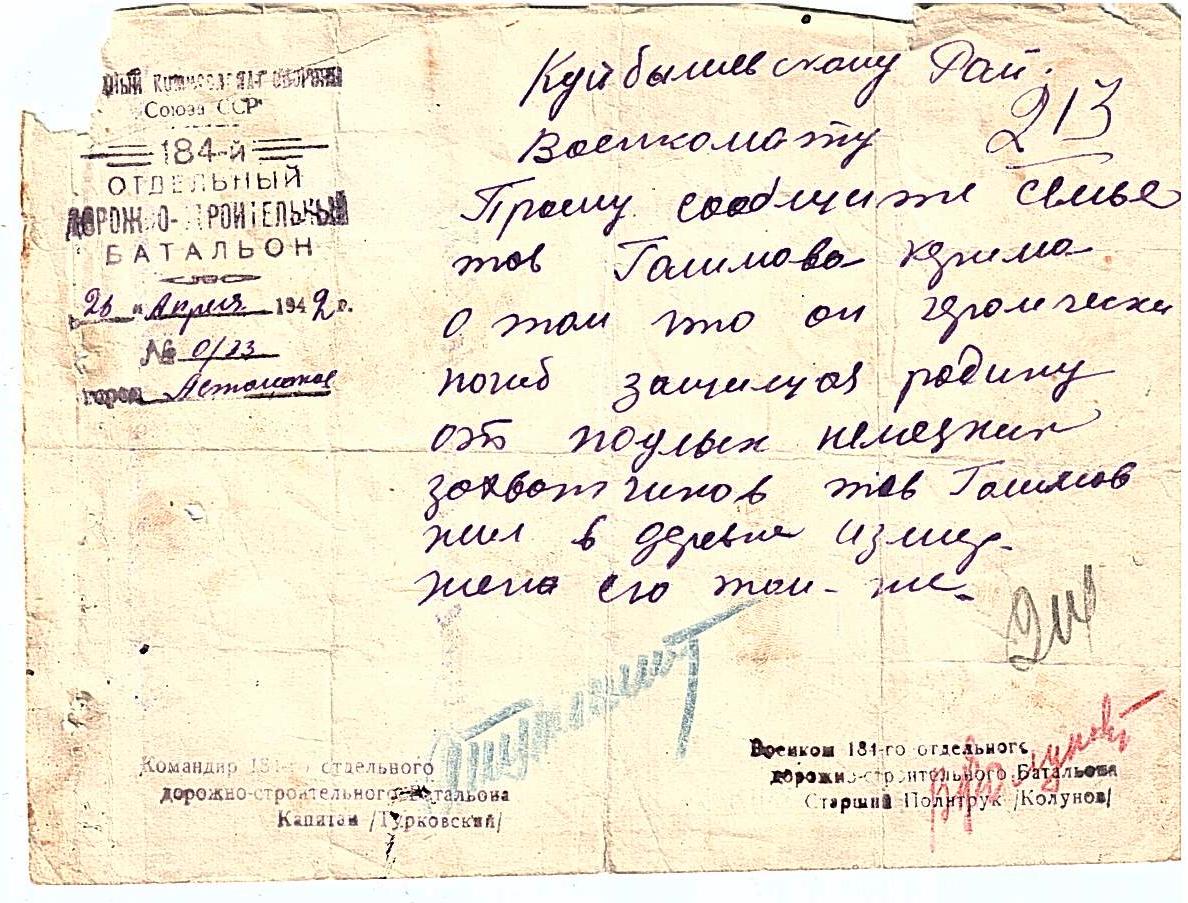 ный Комиссариат обороны
Союза ССР
184-й
ОТДЕЛЬНЫЙ
ДОРОЖНО-СТРОИТЕЛЬНЫЙ
БАТАЛЬОН
26 " Апреля 1942 г.
№ 0/13
город
Куйбышевскому Рай.
Военкомату 213
Прошу сообщите семье
тов Галимова Керима
о том что он героически
погиб защищая родину
от подлых немецких
захватчиков тов Галимов
жил в деревне
жена его там-же
214
Командир 184-го отдельного
дорожно-строительного Батальона
Капитан /Турковский/
Военком 184-го отдельного
дорожно-строительного Батальона
Старший Политрук /Колунов/